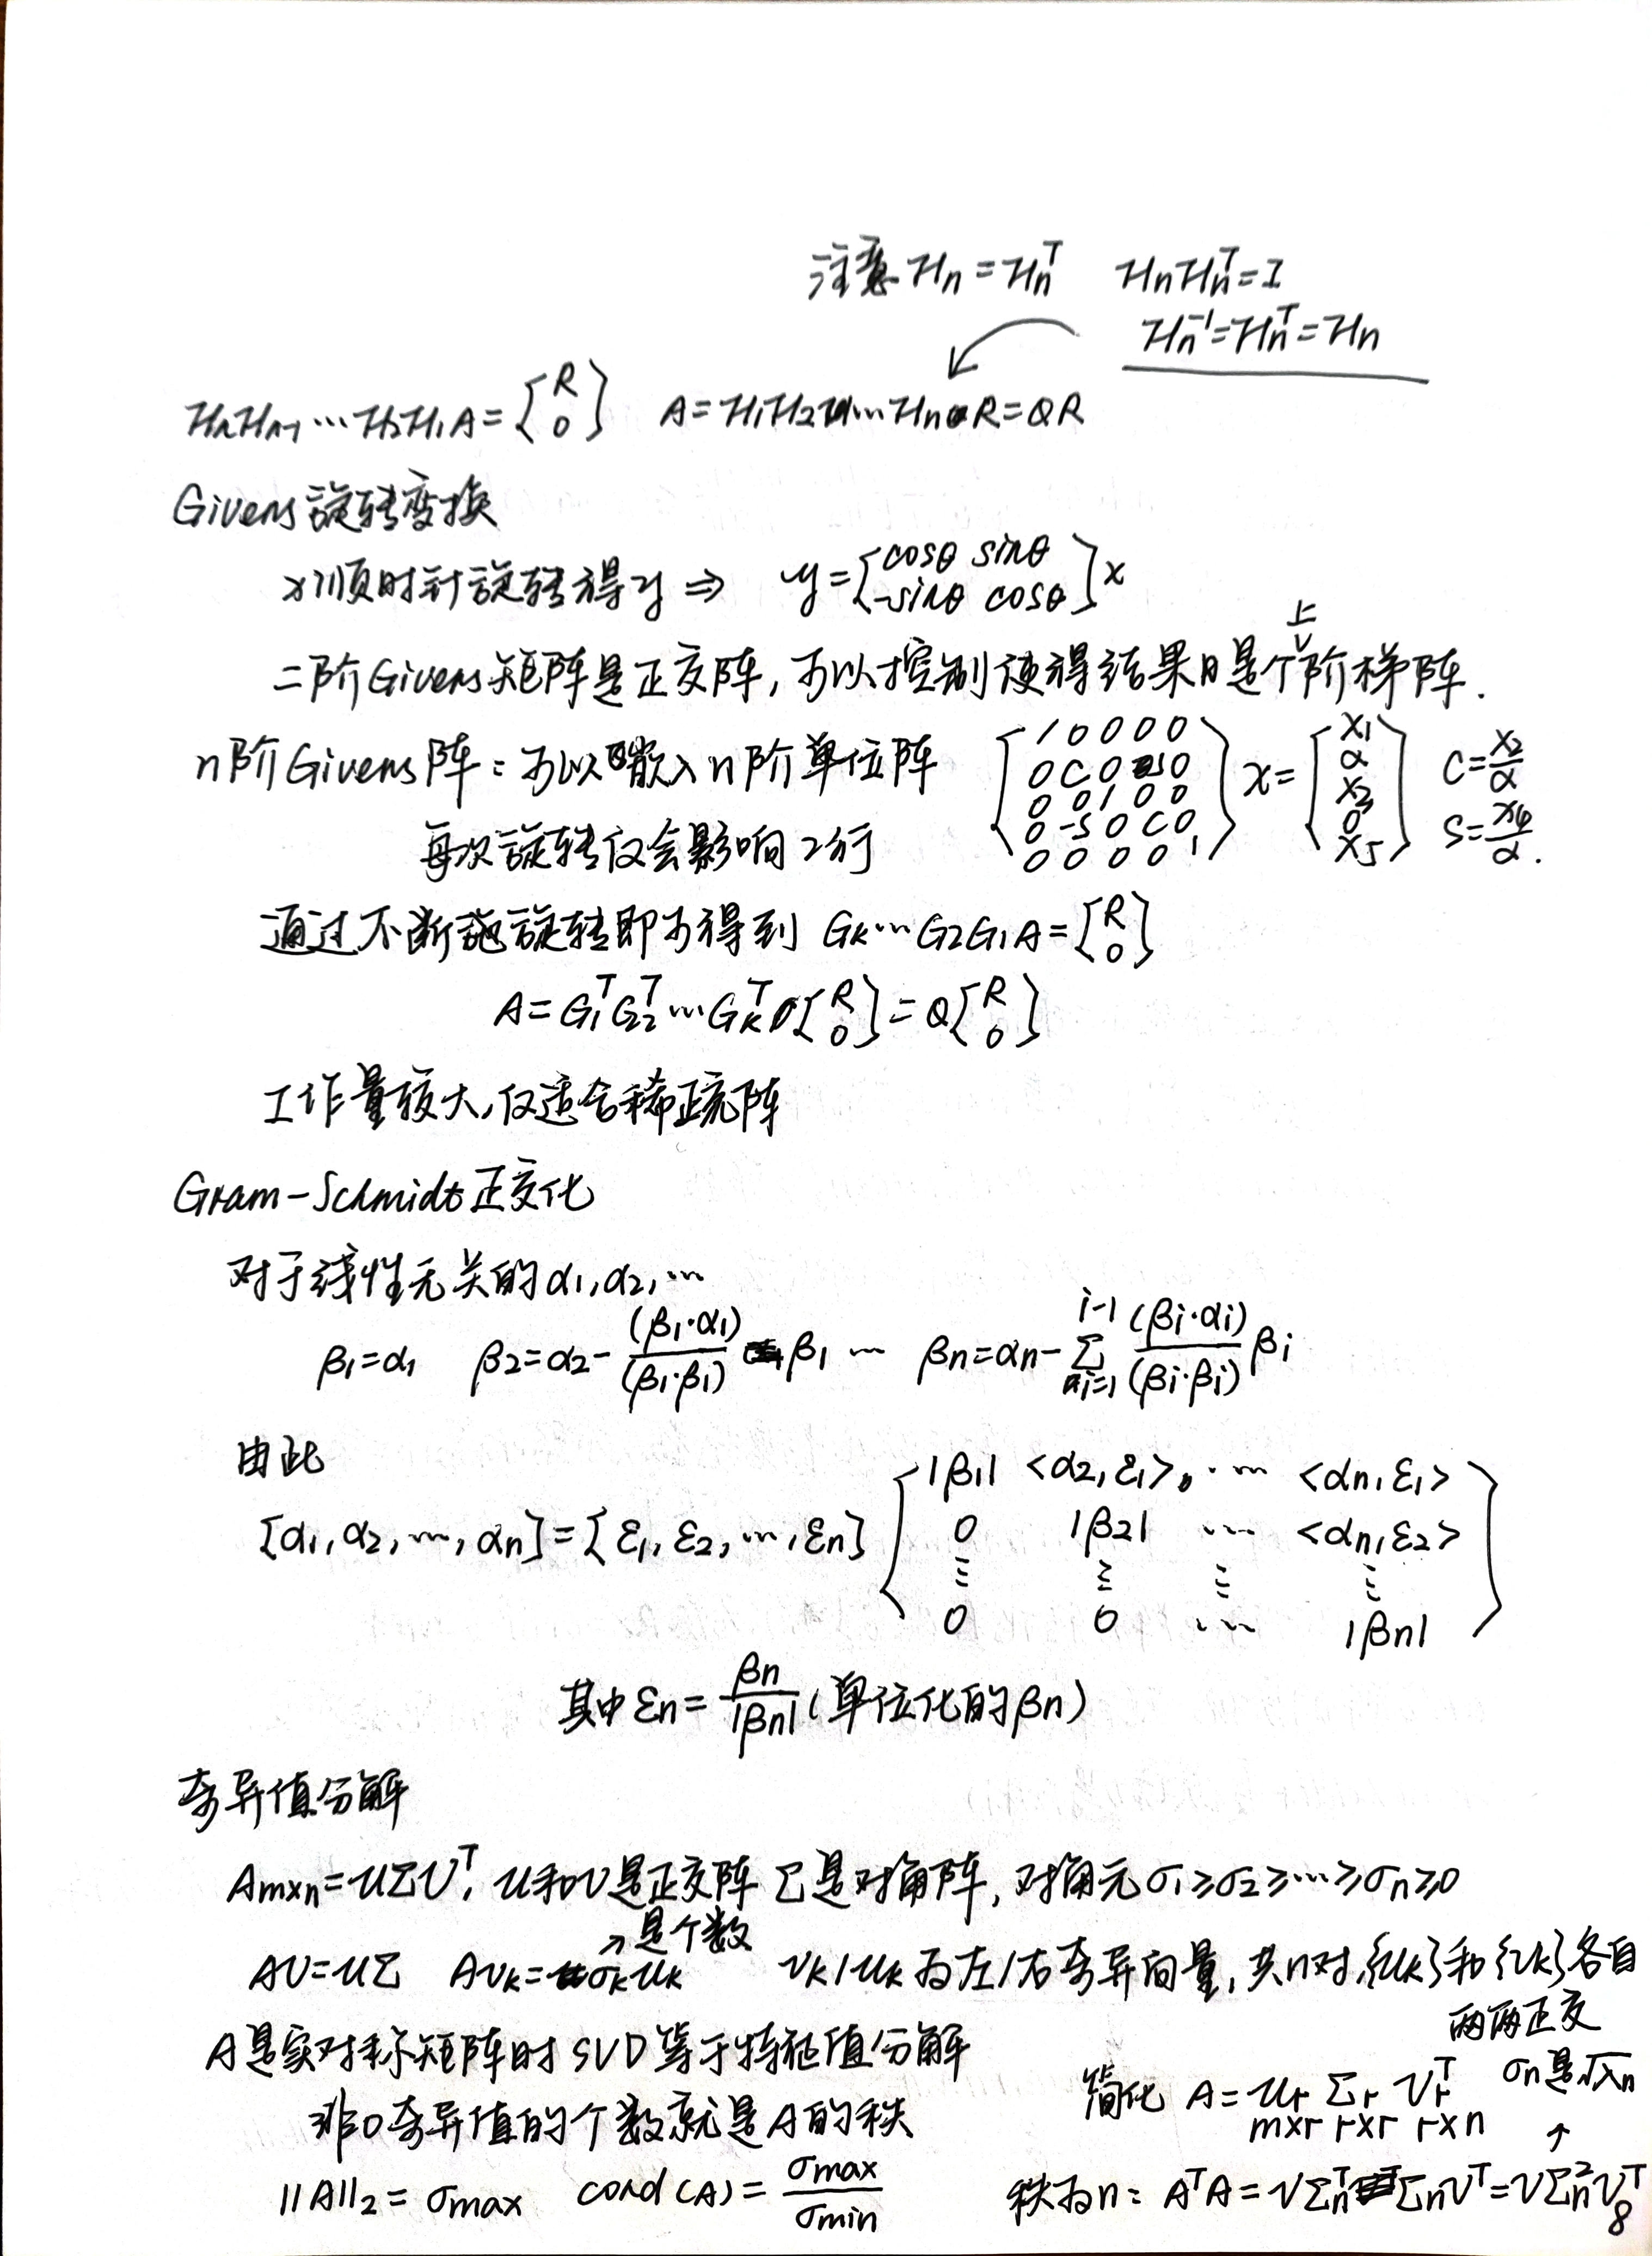 注意 Hn = Hn^T  HnHn^T = I
Hn^-1 = Hn^T = Hn
HnHn-1 ⋯ H2H1A = [R; 0]  A = H1H2 ⋯ Hn R = QR
Givens旋转变换
x顺时针旋转得y ⇒ y = [cosθ sinθ; -sinθ cosθ] x
二阶Givens矩阵是正交阵, 可以控制使得结果是个上阶梯阵.
n阶Givens阵: 可以嵌入n阶单位阵 [1 0 0 0 0; 0 C 0 S 0; 0 0 1 0 0; 0 -S 0 C 0; 0 0 0 0 1] x = [x1; α; x3; 0; x5]  C = x2/α
每次旋转仅会影响2行  S = x4/α.
通过不断施旋转即可得到 Gk⋯G2G1A = [R; 0]
A = G1^T G2^T ⋯ Gk^T [R; 0] = Q[R; 0]
工作量较大,仅适合稀疏阵
Gram-Schmidt正交化
对于线性无关的α1, α2, ⋯
β1 = α1  β2 = α2 - (β1·α1)/(β1·β1) β1 ⋯ βn = αn - Σ_{i=1}^{i-1} (βi·αi)/(βi·βi) βi
由此
[α1, α2, ⋯, αn] = [ε1, ε2, ⋯, εn] [|β1| <α2, ε1> ⋯ <αn, ε1>; 0 |β2| ⋯ <αn, ε2>; ⋮ ⋮ ⋮ ⋮; 0 0 ⋯ |βn|]
其中εn = βn/|βn| (单位化的βn)
奇异值分解
Am×n = UΣV^T, U和V是正交阵 Σ是对角阵, 对角元σ1≥σ2≥⋯≥σn≥0
↗是个数
AV = UΣ  Avk = σkuk  vk/uk为左/右奇异向量, 共n对, {uk}和{vk}各自
两两正交
A是实对称矩阵时SVD等于特征值分解
简化 A = Ur Σr Vr^T  σn是√λn
m×r r×r r×n  ↑
非0奇异值的个数就是A的秩
||A||2 = σmax  cond(A) = σmax/σmin  秩为n: A^TA = VΣn^TΣnV^T = VΣn^2V^T
8